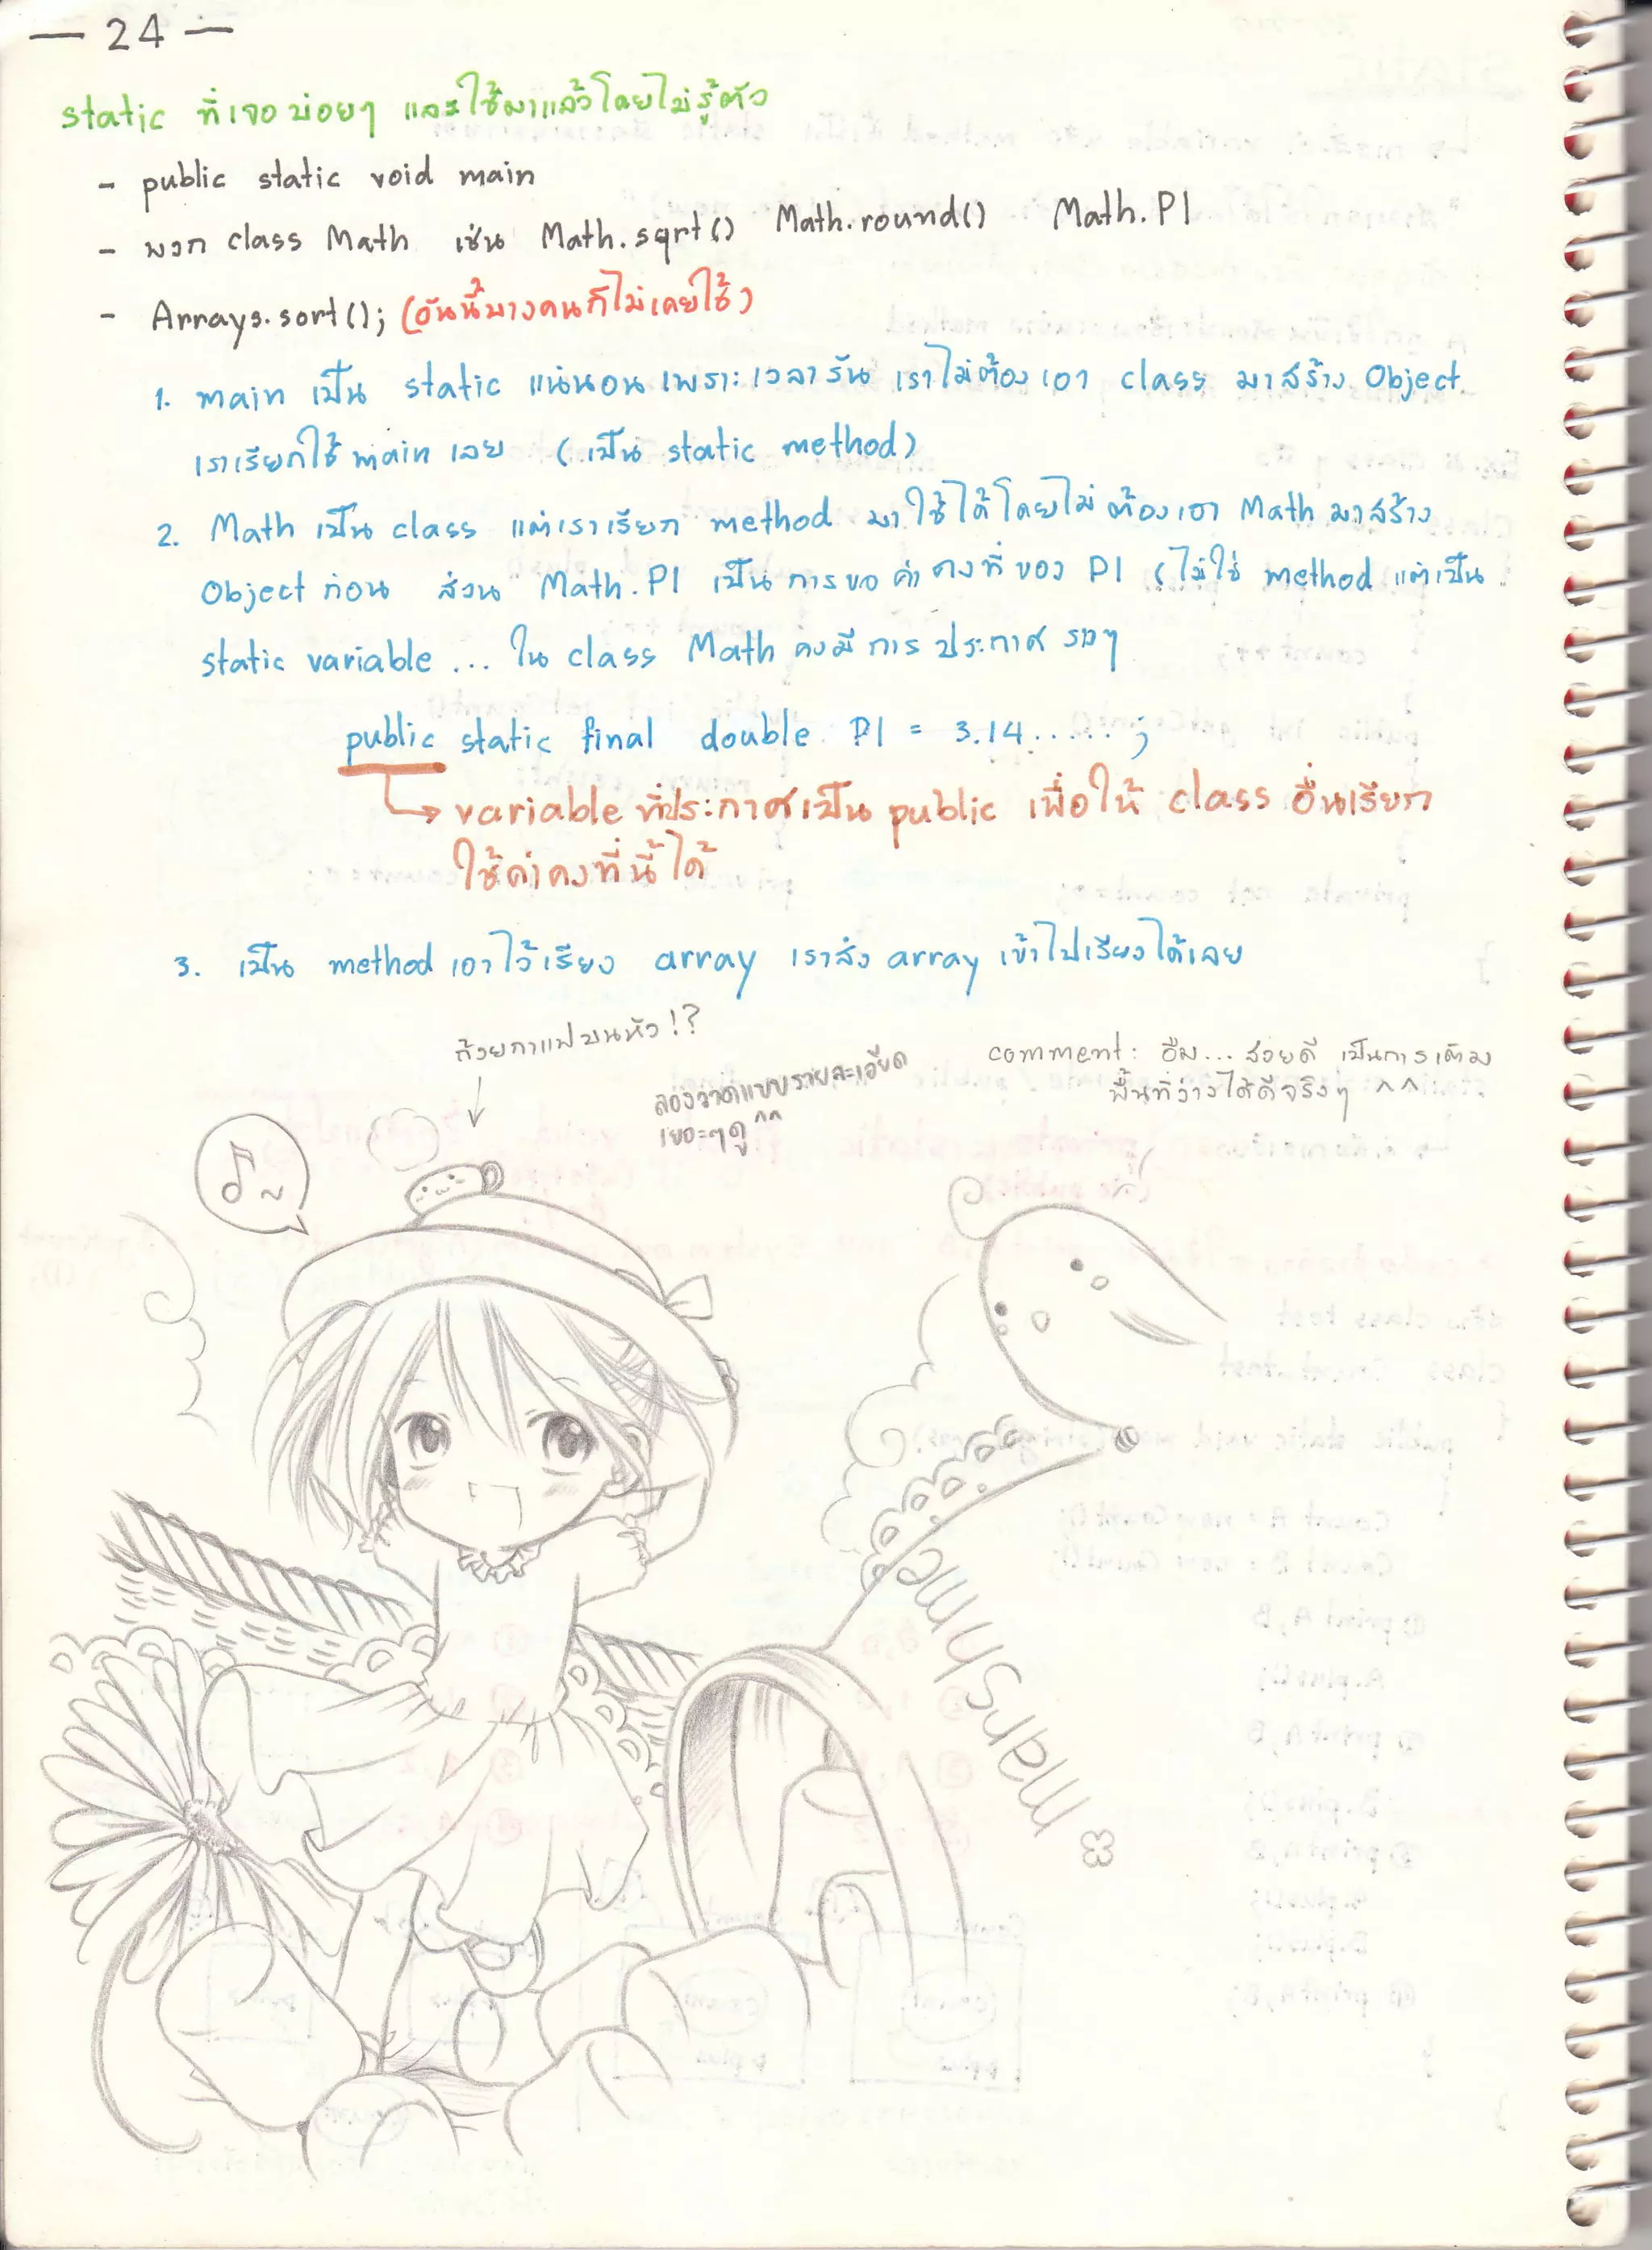 — 24 —
static ที่เจอบ่อยๆ และใช้มาแล้วโดยไม่รู้ตัว
- public static void main
- พวก class Math เช่น Math.sqrt() Math.round() Math.PI
- Arrays.sort(); (อันนี้บางคนก็ไม่เคยใช้)
1. main เป็น static แน่นอน เพราะเวลารัน เราไม่ต้องเอา class มาสร้าง Object
เราเรียกใช้ main เลย (เป็น static method)
2. Math เป็น class แต่เราเรียก method มาใช้ได้โดยไม่ต้องเอา Math มาสร้าง
Object ก่อน ส่วน Math.PI เป็นการขอค่าคงที่ของ PI (ไม่ใช่ method แต่เป็น
static variable ... ใน class Math คงมีการประกาศ ราวๆ
public static final double PI = 3.14.....;
variable ที่ประกาศเป็น public เพื่อให้ class อื่นเรียก
ใช้ค่าคงที่นี้ได้
3. เป็น method เอาไว้เรียง array เราส่ง array เข้าไปเรียงได้เลย
ถ้วยกาแฟบนหัว!?
ลองวาดแบบรายละเอียด
เยอะๆดู ^^
comment: อืม... สวยดี เป็นการเติม
พื้นที่ว่างได้ดีจริงๆ ^^
marshme